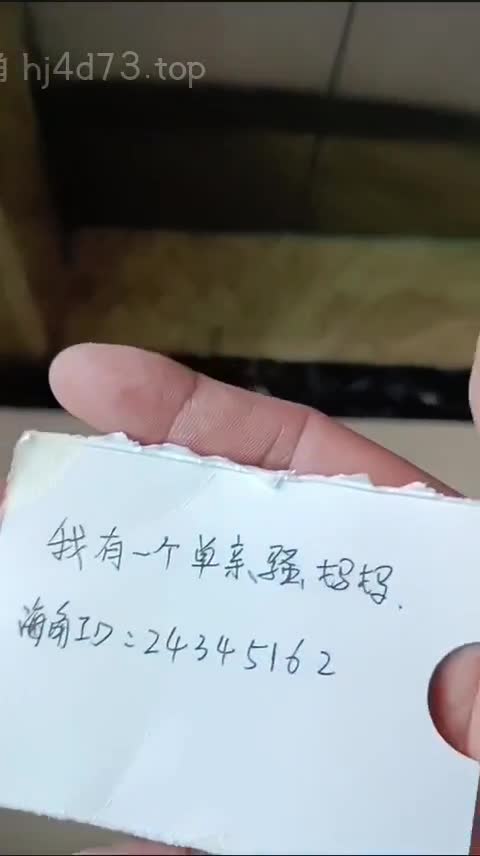 角 hj4d73.top
我有一个单亲骚妈妈.
海角ID:24345162